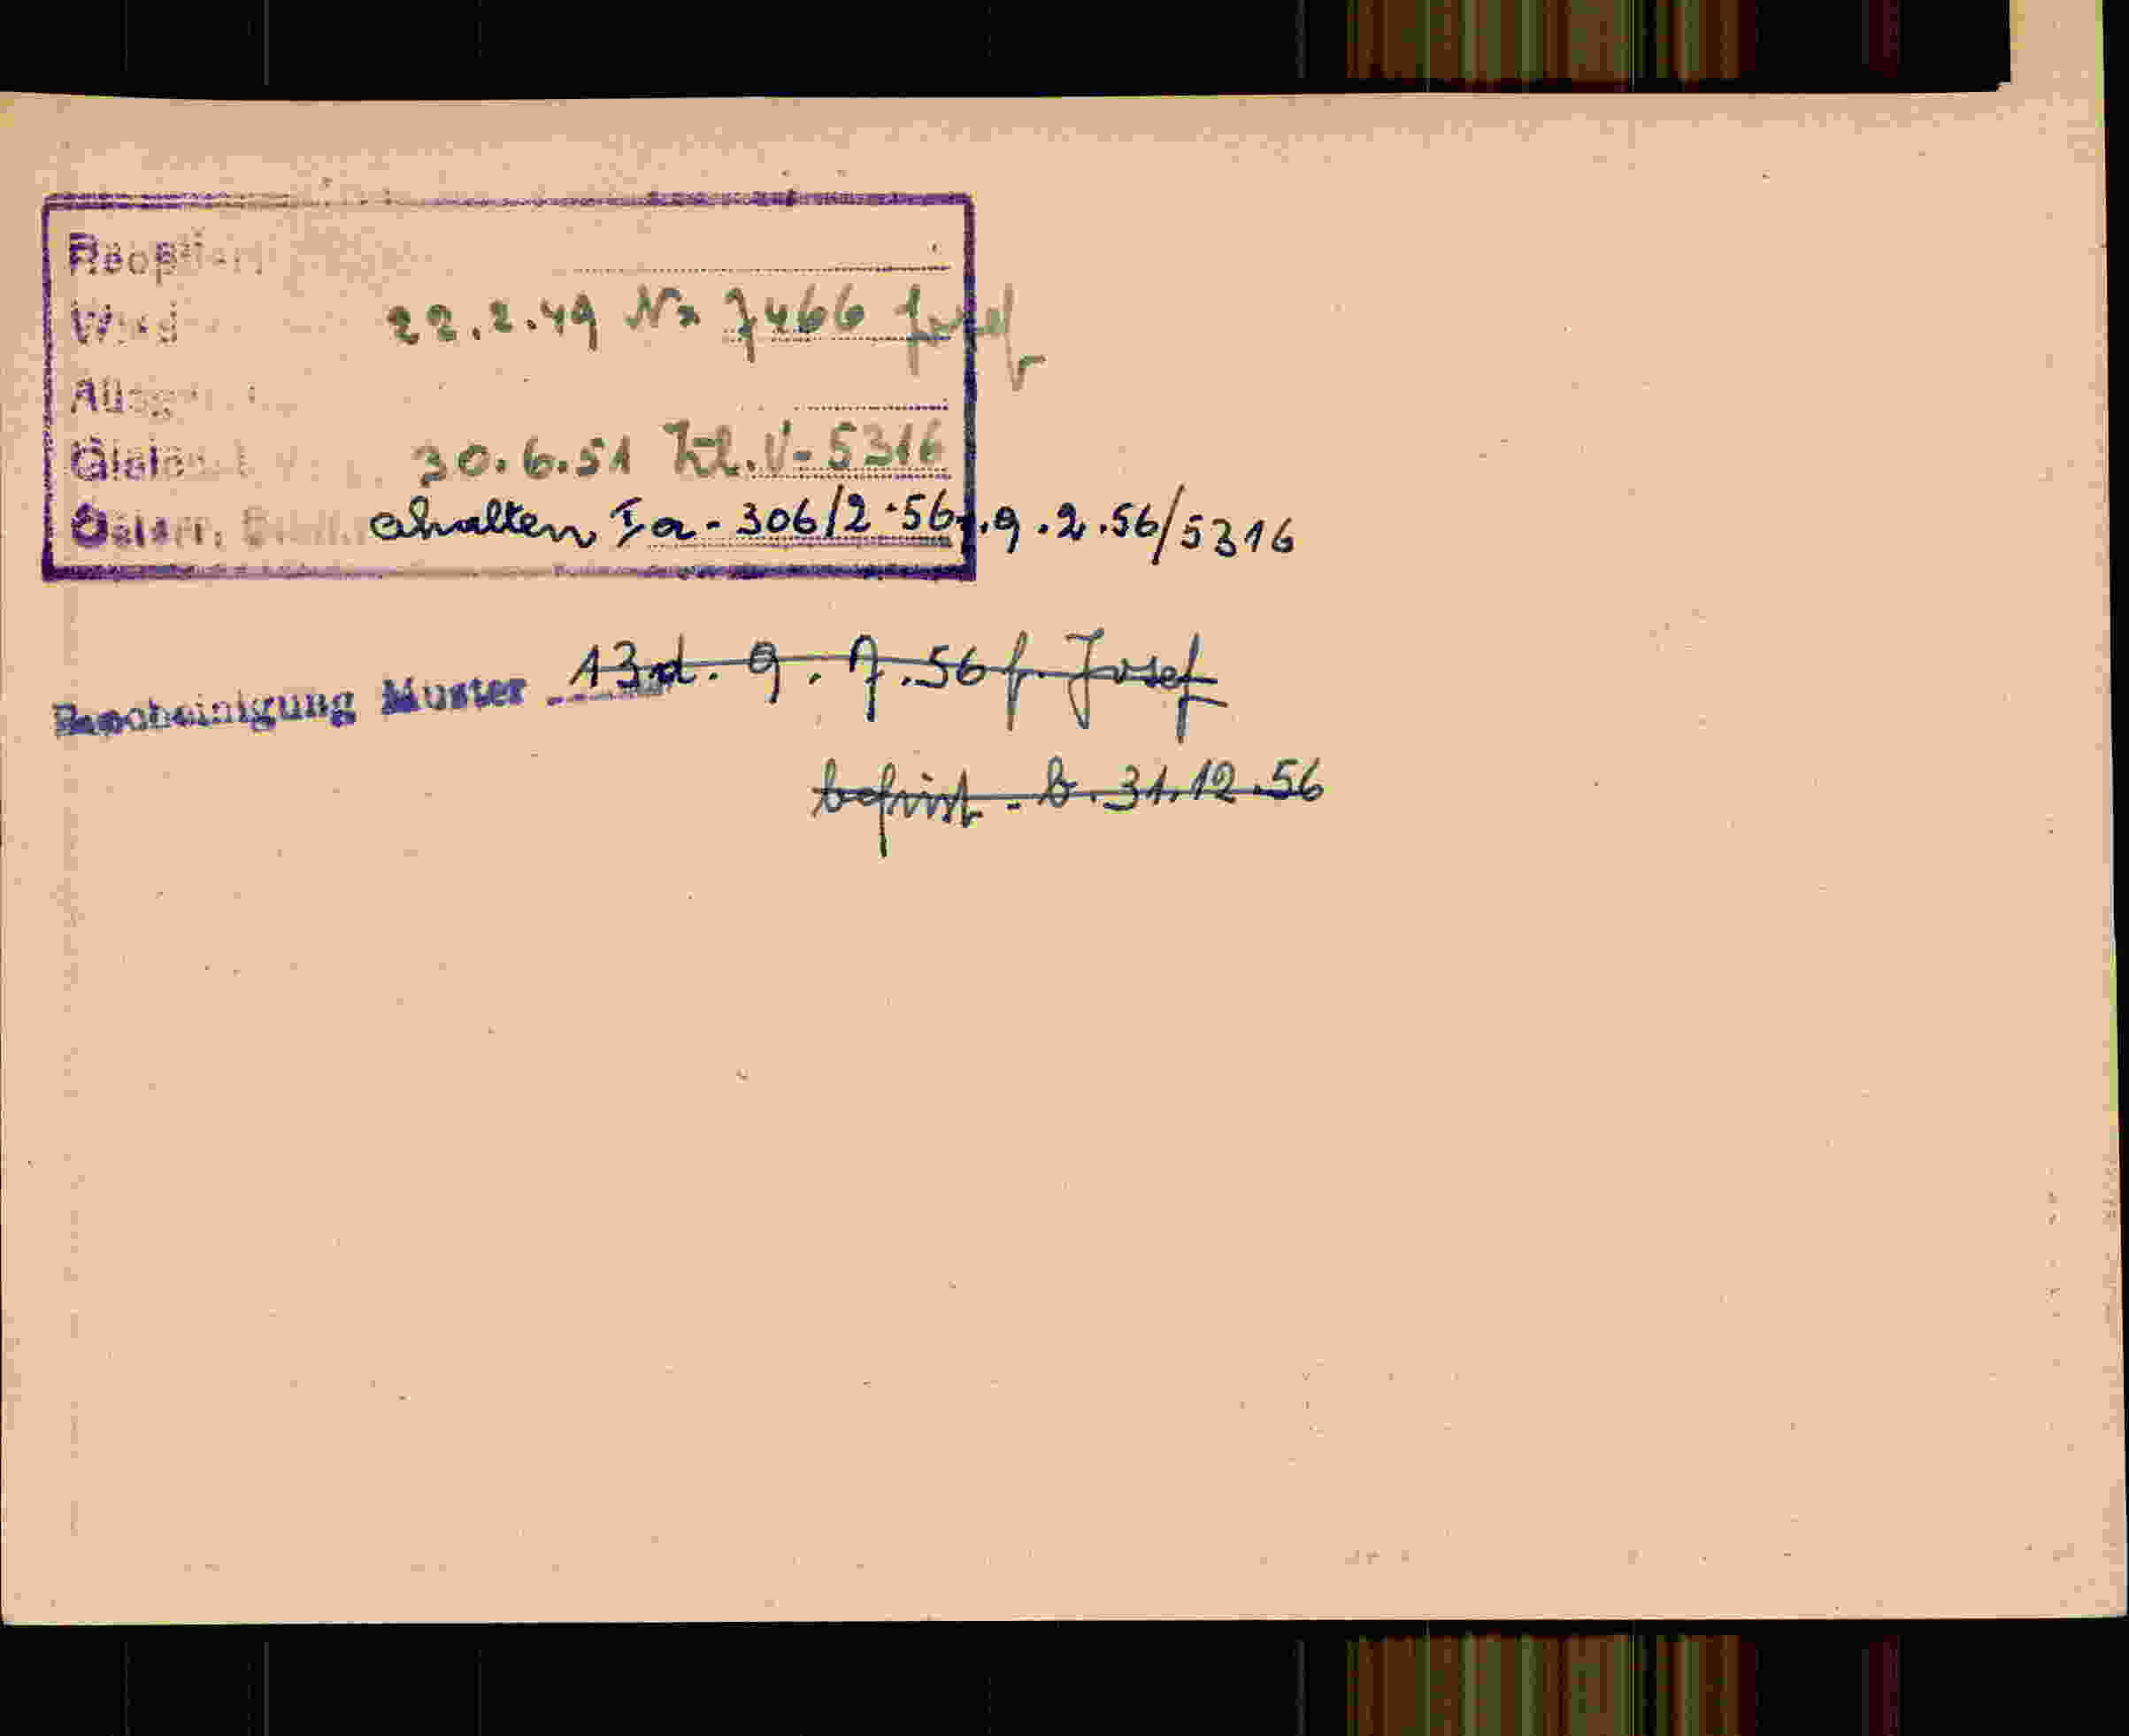 22.2.49 Nr 7466 Josef
30.6.51 Zl. V-5316
Österr. erhalten Ia-306/2.56 v. 9.2.56/5316
Bescheinigung Muster 13 d. 9.7.56 f. Josef
befrist. b. 31.12.56